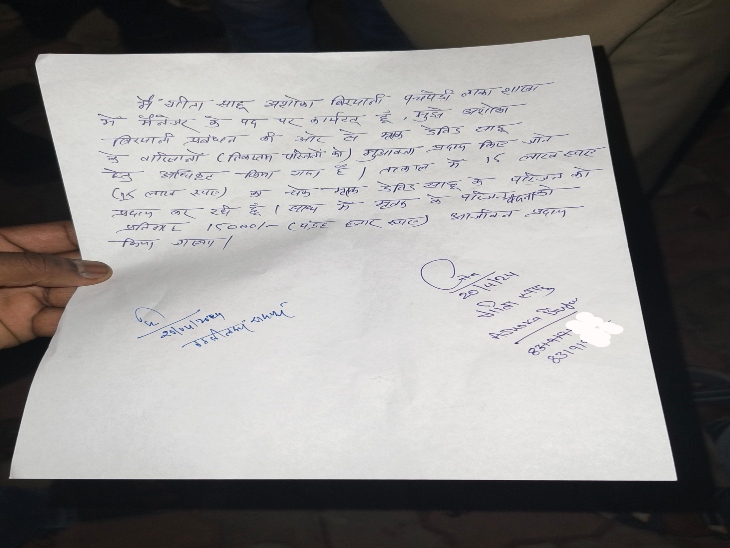 मैं गीता साहू अशोका बिरयानी पचपेड़ी नाका शाखा
में मैनेजर के पद पर कार्यरत हूँ, मुझे अशोका
बिरयानी प्रबंधन की ओर से मृतक डेविड साहू
के वारिसानों (निकटतम परिजनों को) मुआवजा प्रदान किए जाने
हेतु अधिकृत किया गया है। तत्काल में 15 लाख रूपए
(15 लाख रूपए) का चेक मृतक डेविड साहू के परिजन को
प्रदान कर रही हूँ। साथ में मृतक के परिजन को
प्रतिमाह 15000/- (पंद्रह हजार रूपए) आजीवन प्रदान
किया जाएगा।
20/4/24
गीता साहू
Ashoka
20/04/2024